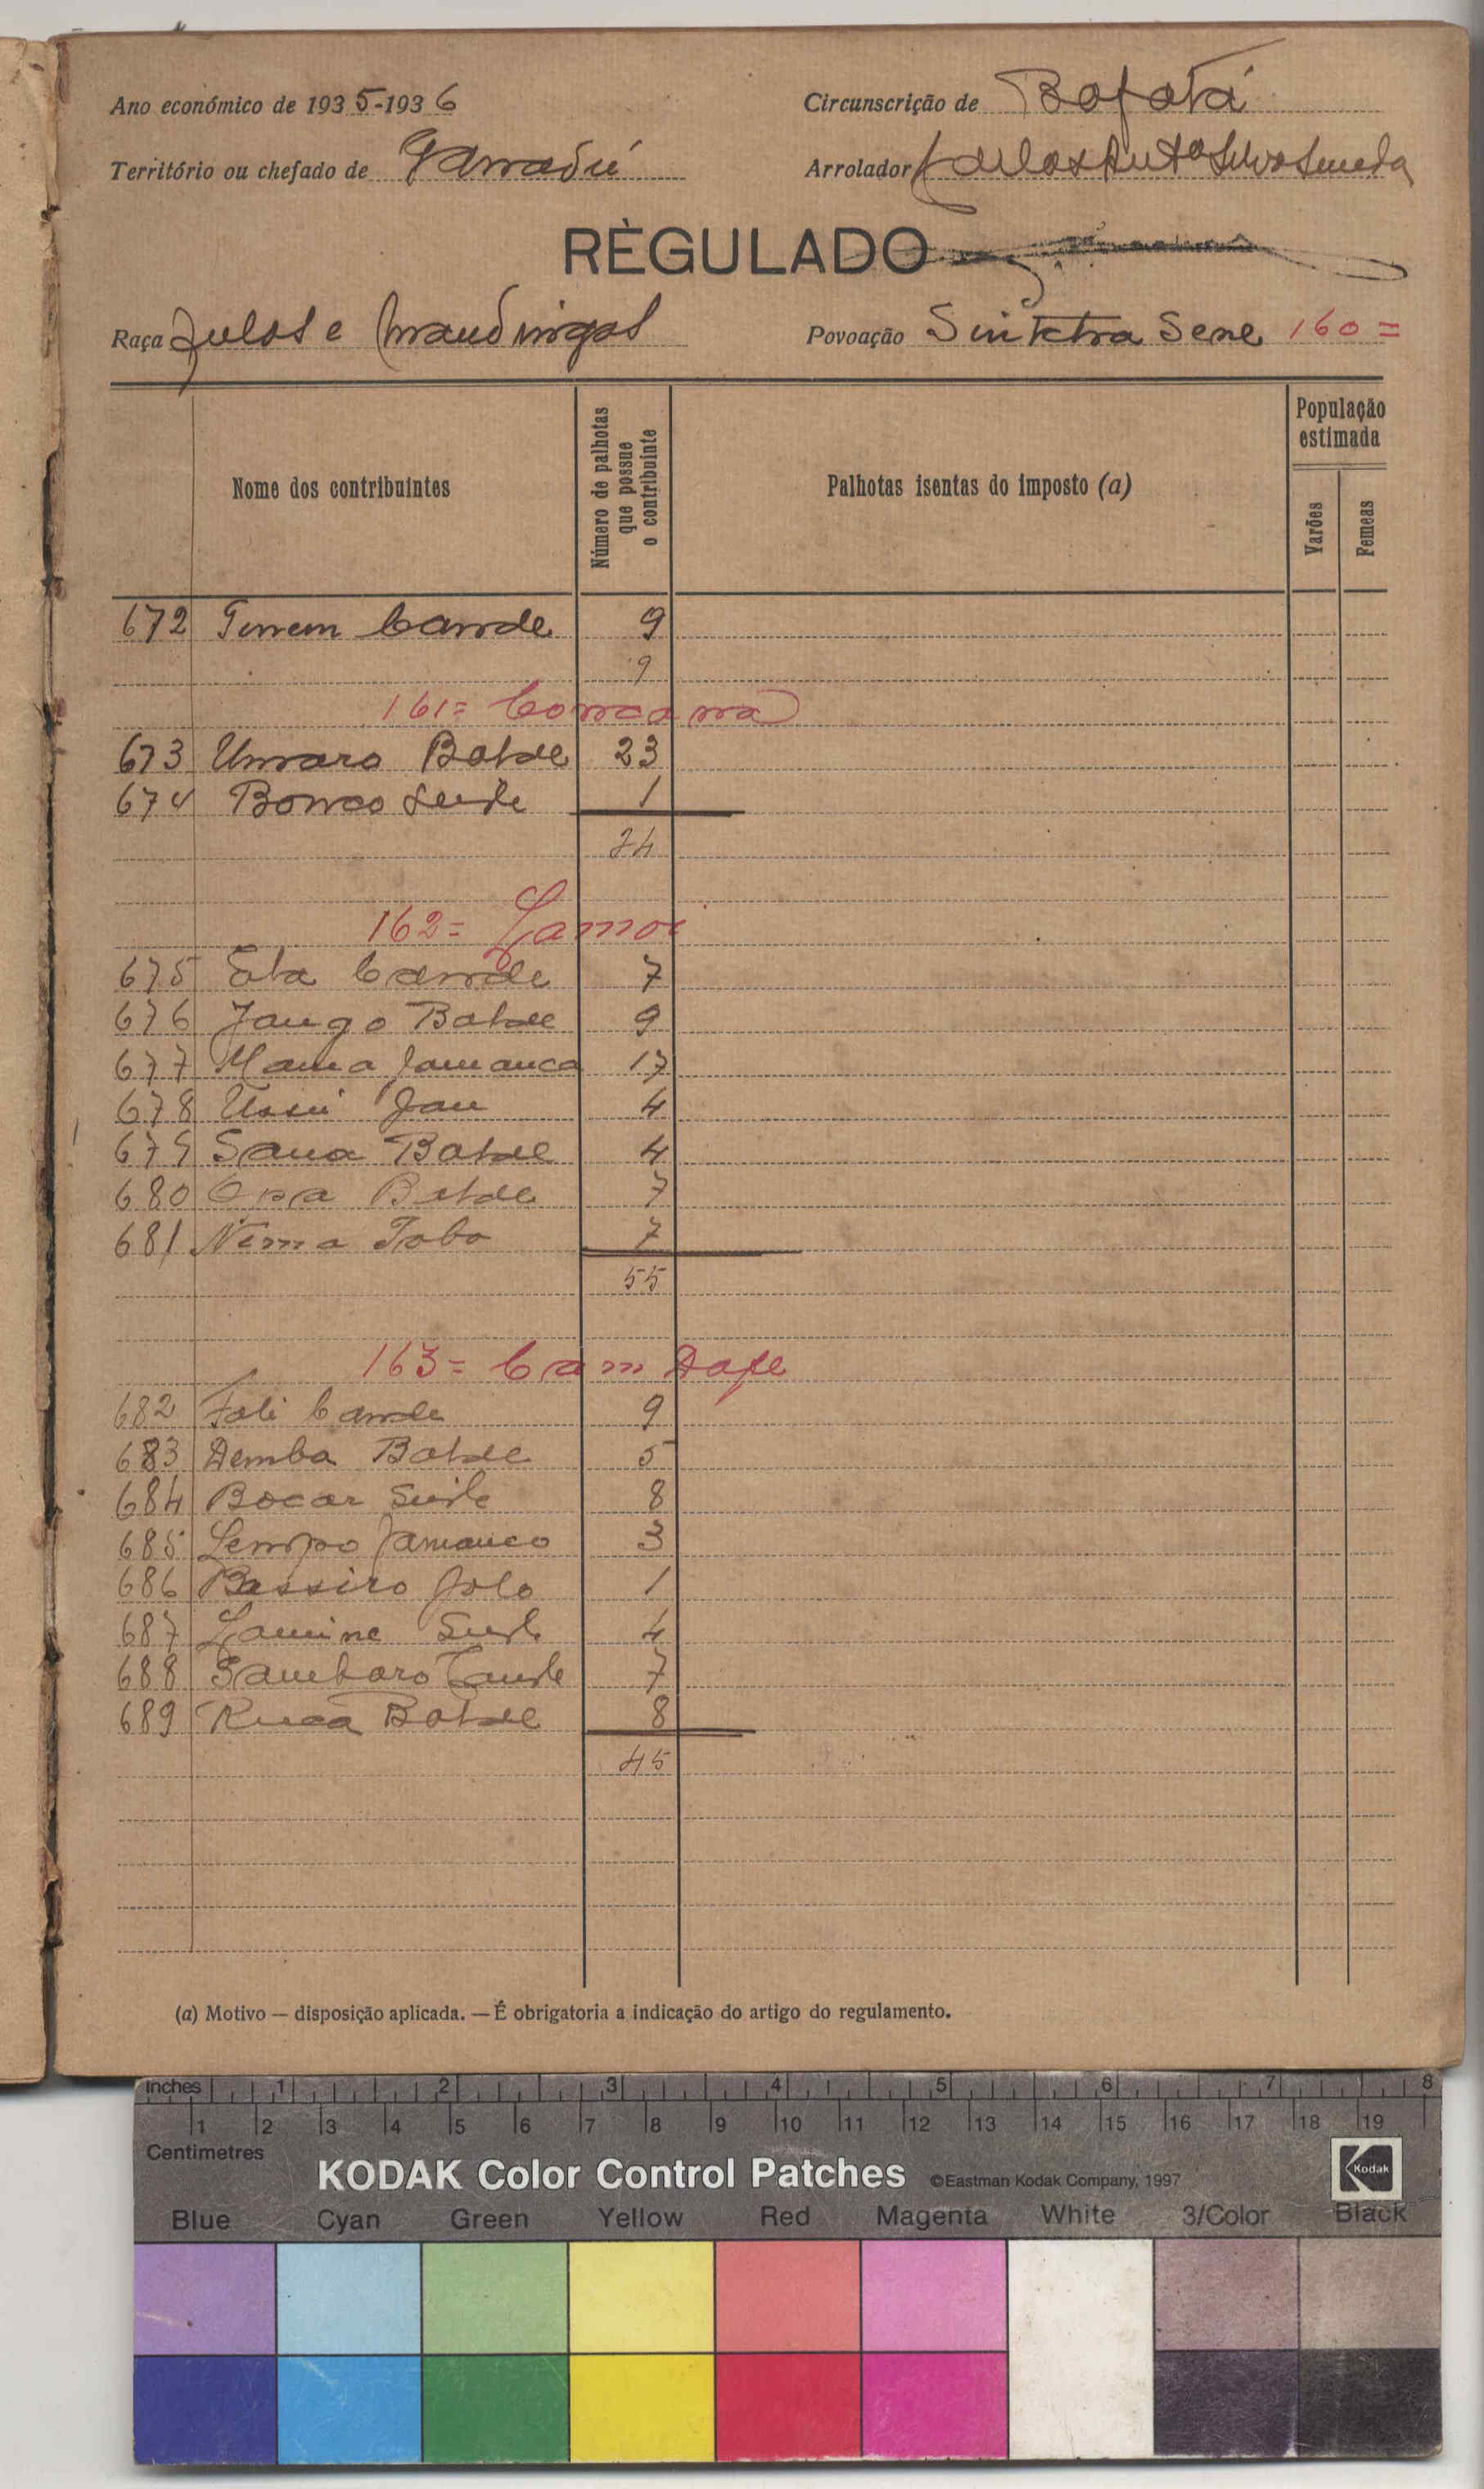 Ano económico de 1935-1936
Circunscrição de Bafatá
Território ou chefado de Ganadú
Arrolador Carlos Silva
RÈGULADO
Raça Fulas e Mandingas
Povoação Sintchra Sene 160 =
Nome dos contribuintes
Número de palhotas que possue o contribuinte
Palhotas isentas do imposto (a)
População estimada
Varões
Femeas
672 Cande 9
9
161=
673 Umaro Balde 23
674 Bonco Seide 1
24
162=
675 Cande 7
676 Jango Balde 9
677 Mama Jamanca 17
678 Ussu Jau 4
679 Sana Balde 4
680 Balde 7
681 7
55
163= Cam Dafe
682 Fali Cande 9
683 Demba Balde 5
684 Bocar Seide 8
685 Jamanco 3
686 Bassiro 1
687 Lamine Seide 4
688 Sambaro Cande 7
689 Balde 8
45
(a) Motivo — disposição aplicada. — É obrigatoria a indicação do artigo do regulamento.
inches 1 2 3 4 5 6 7 8
1 2 3 4 5 6 7 8 9 10 11 12 13 14 15 16 17 18 19
Centimetres
KODAK Color Control Patches ©Eastman Kodak Company, 1997 Kodak
Blue Cyan Green Yellow Red Magenta White 3/Color Black